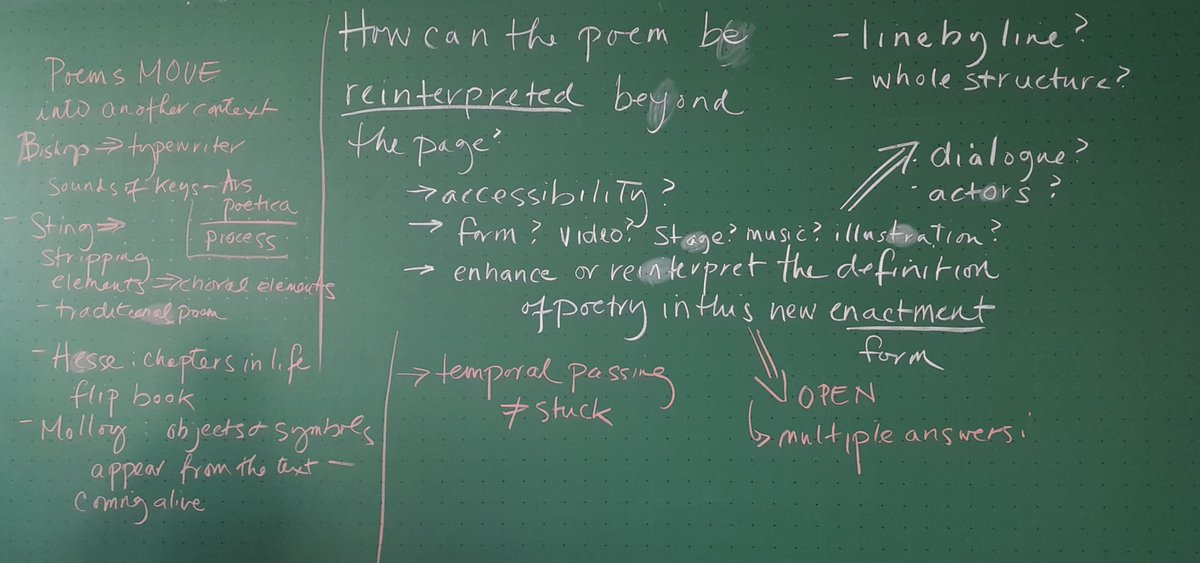 Poems MOVE
into another context
Bishop ⇒ typewriter
Sounds of keys - Ars
poetica
process
- Sting ⇒
stripping
elements ⇒ choral elements
- traditional poem
- Hesse : chapters in life
flip book
- Molloy : objects & symbols
appear from the text -
coming alive
How can the poem be
reinterpreted beyond
the page?
→ accessibility?
→ form? video? stage? music? illustration?
→ enhance or reinterpret the definition
of poetry in this new enactment
form
- line by line?
- whole structure?
· dialogue?
· actors?
→ temporal passing
≠ stuck
OPEN
↳ multiple answers!